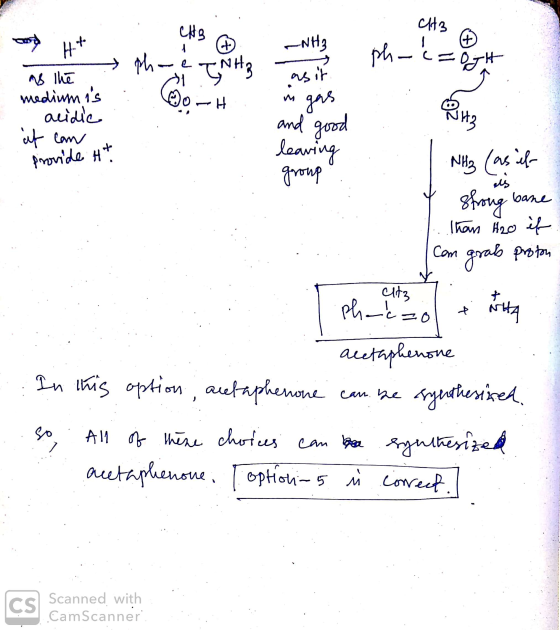 CH3
H+ Ph-C-NH3 -NH3 Ph-C=O-H
CH3
as the
medium is
acidic
it can
provide H+.
O-H
as it
is gas
and good
leaving
group
NH3
NH3 (as it
is
strong base
than H2O it
can grab proton
CH3
Ph-C=O + NH4
acetaphenone
In this option, acetaphenone can be synthesized.
So, All of these choices can synthesized
acetaphenone. Option-5 is correct.
CS Scanned with
CamScanner